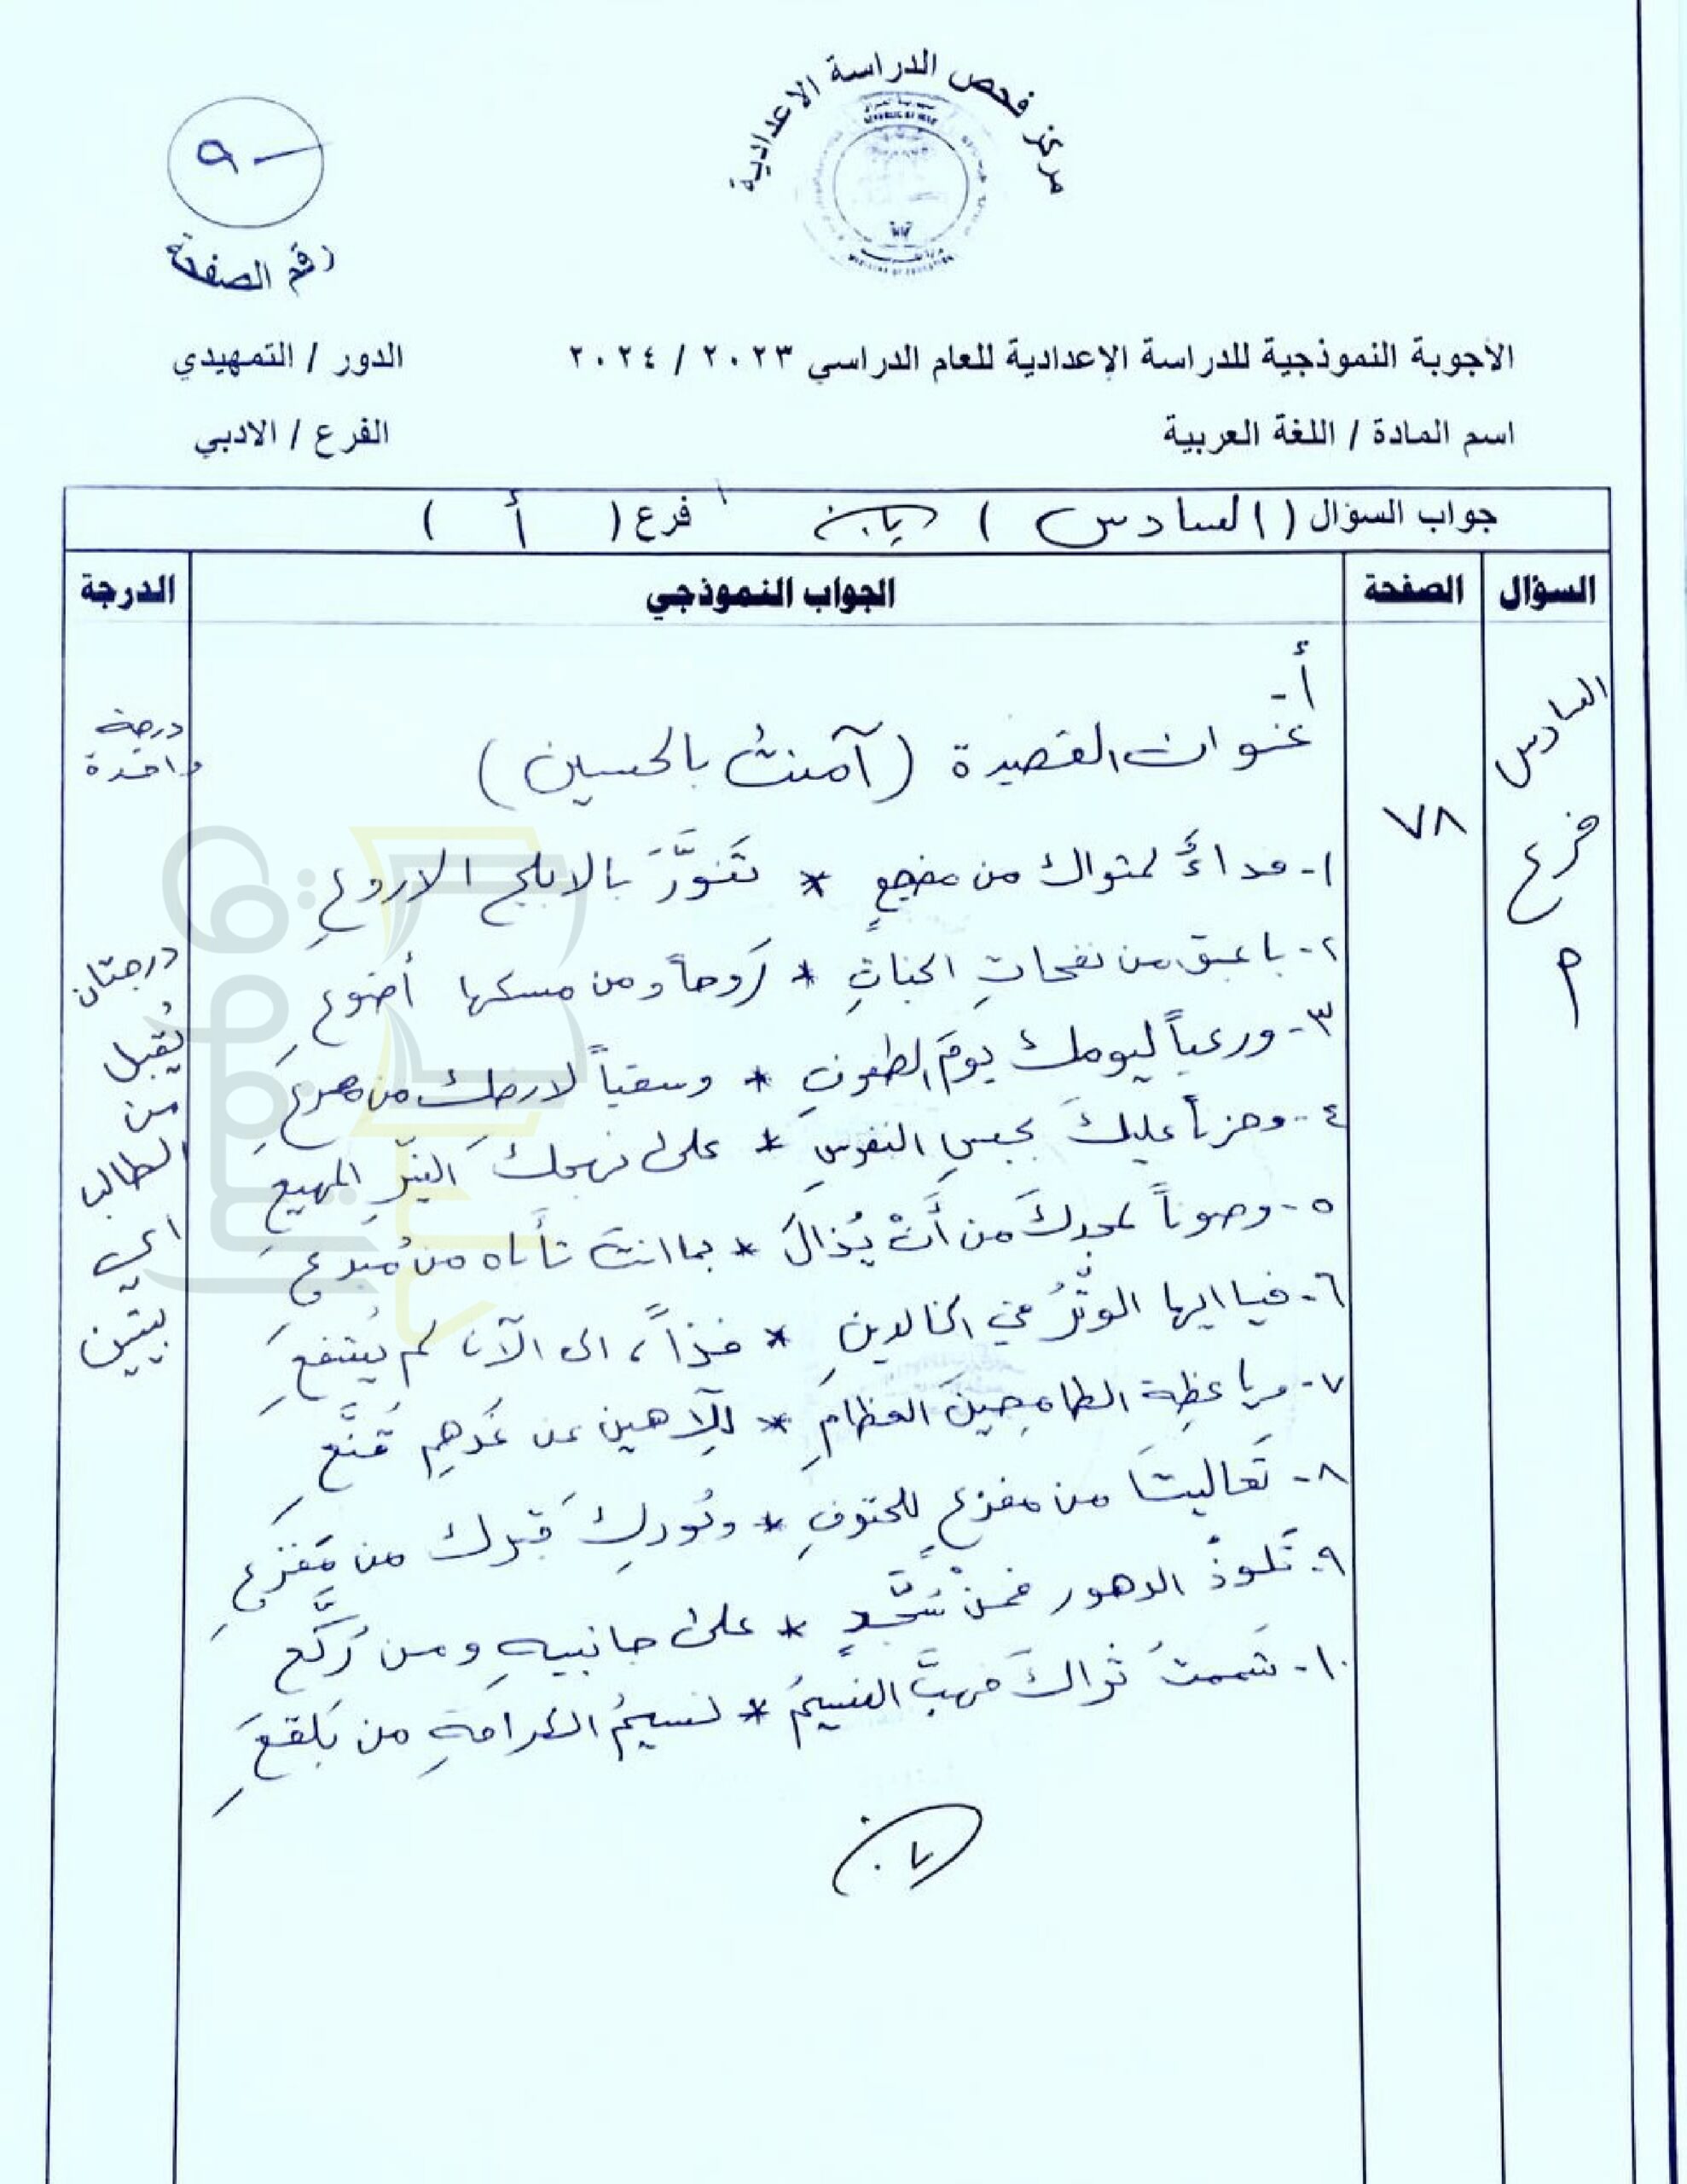 مركز فحص الدراسة الاعدادية
REPUBLIC OF IRAQ
MINISTRY OF EDUCATION
٩-
رقم الصفحة
الأجوبة النموذجية للدراسة الإعدادية للعام الدراسي ٢٠٢٣ / ٢٠٢٤
الدور / التمهيدي
اسم المادة / اللغة العربية
الفرع / الادبي
جواب السؤال ( السادس ) فرع ( أ )
السؤال الصفحة الجواب النموذجي الدرجة
السادس
فرع
٢
٧٨
أ-
عنوان القصيدة (آمنتُ بالحسين)
درجة
واحدة
١- فداءٌ لمثواك من مضجعٍ * تَنوَّرَ بالابلجِ الاروعِ
٢- باعبق من نفحاتِ الجنانِ * رَوحاً ومن مسكها أضوعِ
٣- ورعياً ليومك يومَ الطفوفِ * وسقياً لارضك من مصرعِ
٤- وحزناً عليكَ بحبسِ النفوسِ * على نهجك النيّرِ المهيعِ
٥- وصوناً لمجدكَ من أَنْ يُذالَ * بما انتَ تأباه من مُبدعِ
٦- فيا ايها الوِتْرُ في الخالدينِ * فذاً، الى الآن لم يُشفعِ
٧- ويا عظةَ الطامحينَ العظامِ * للاهين عن غَدِهِم قُنَّعِ
٨- تَعاليتَ من مفزعٍ للحتوفِ * وبُورِكَ قبرك من مَفزعِ
٩- تَلوذُ الدهور فمنْ سُجَّدٍ * على جانبيهِ ومن رُكَّعِ
١٠- شَممتُ ثراكَ فهبَّ النسيمُ * نسيمُ الكرامةِ من بَلقعِ
درجتان
يُقبل
من
الطالب
اي
بيتين